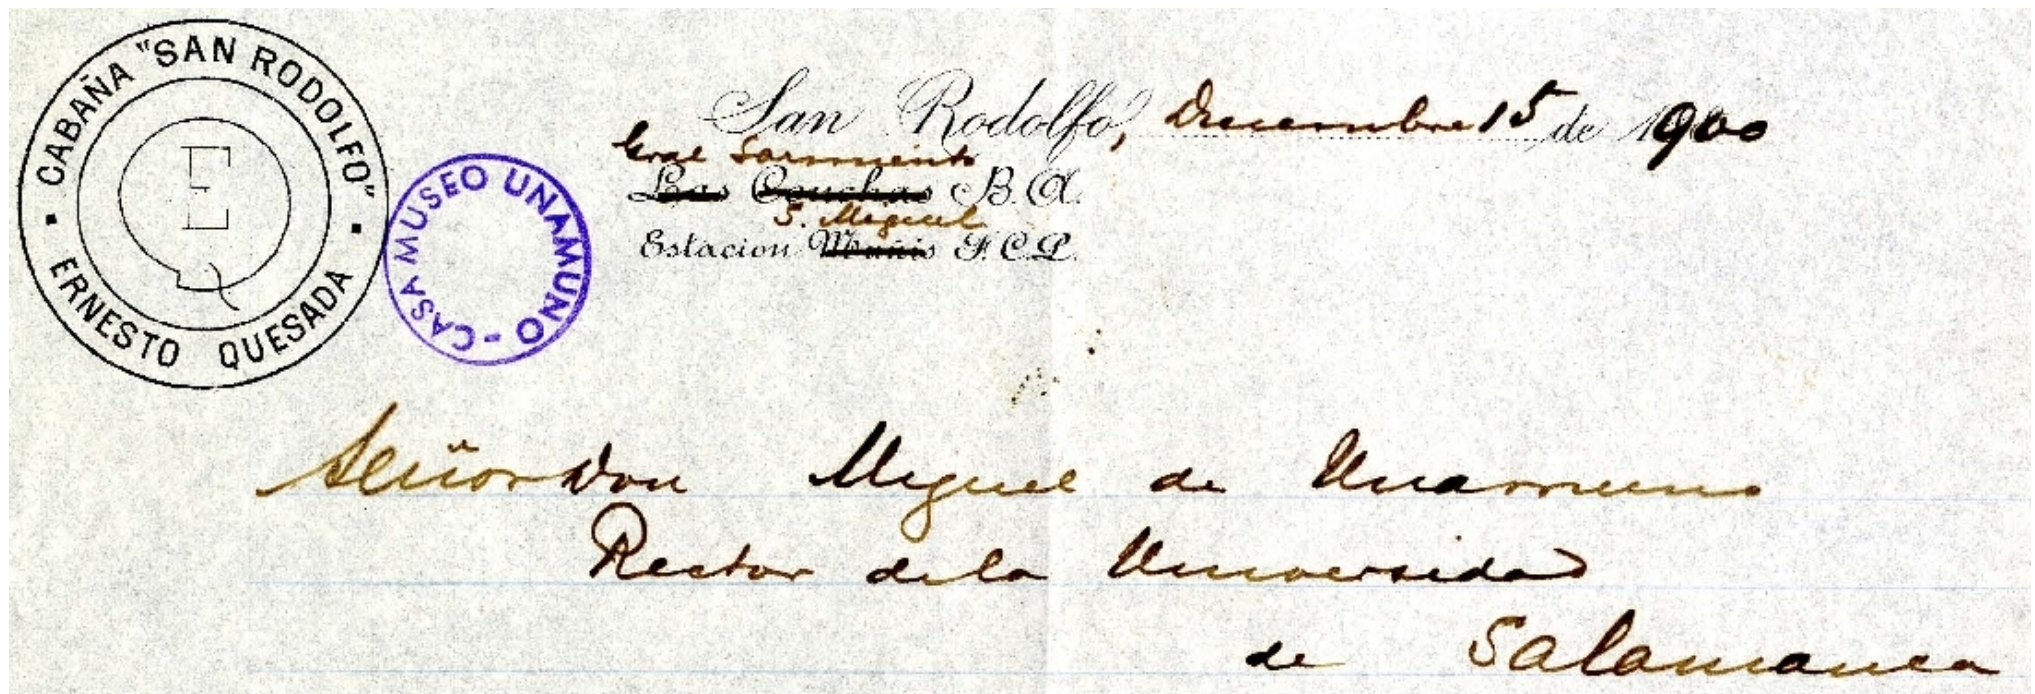 CABAÑA "SAN RODOLFO"
ERNESTO QUESADA
E Q
CASA MUSEO UNAMUNO -
San Rodolfo, Diciembre 15 de 1900
Gral Sarmiento
Las Conchas B. A.
S. Miguel
Estacion Muñis F. C. P.
Señor Don Miguel de Unamuno
Rector de la Universidad
de Salamanca